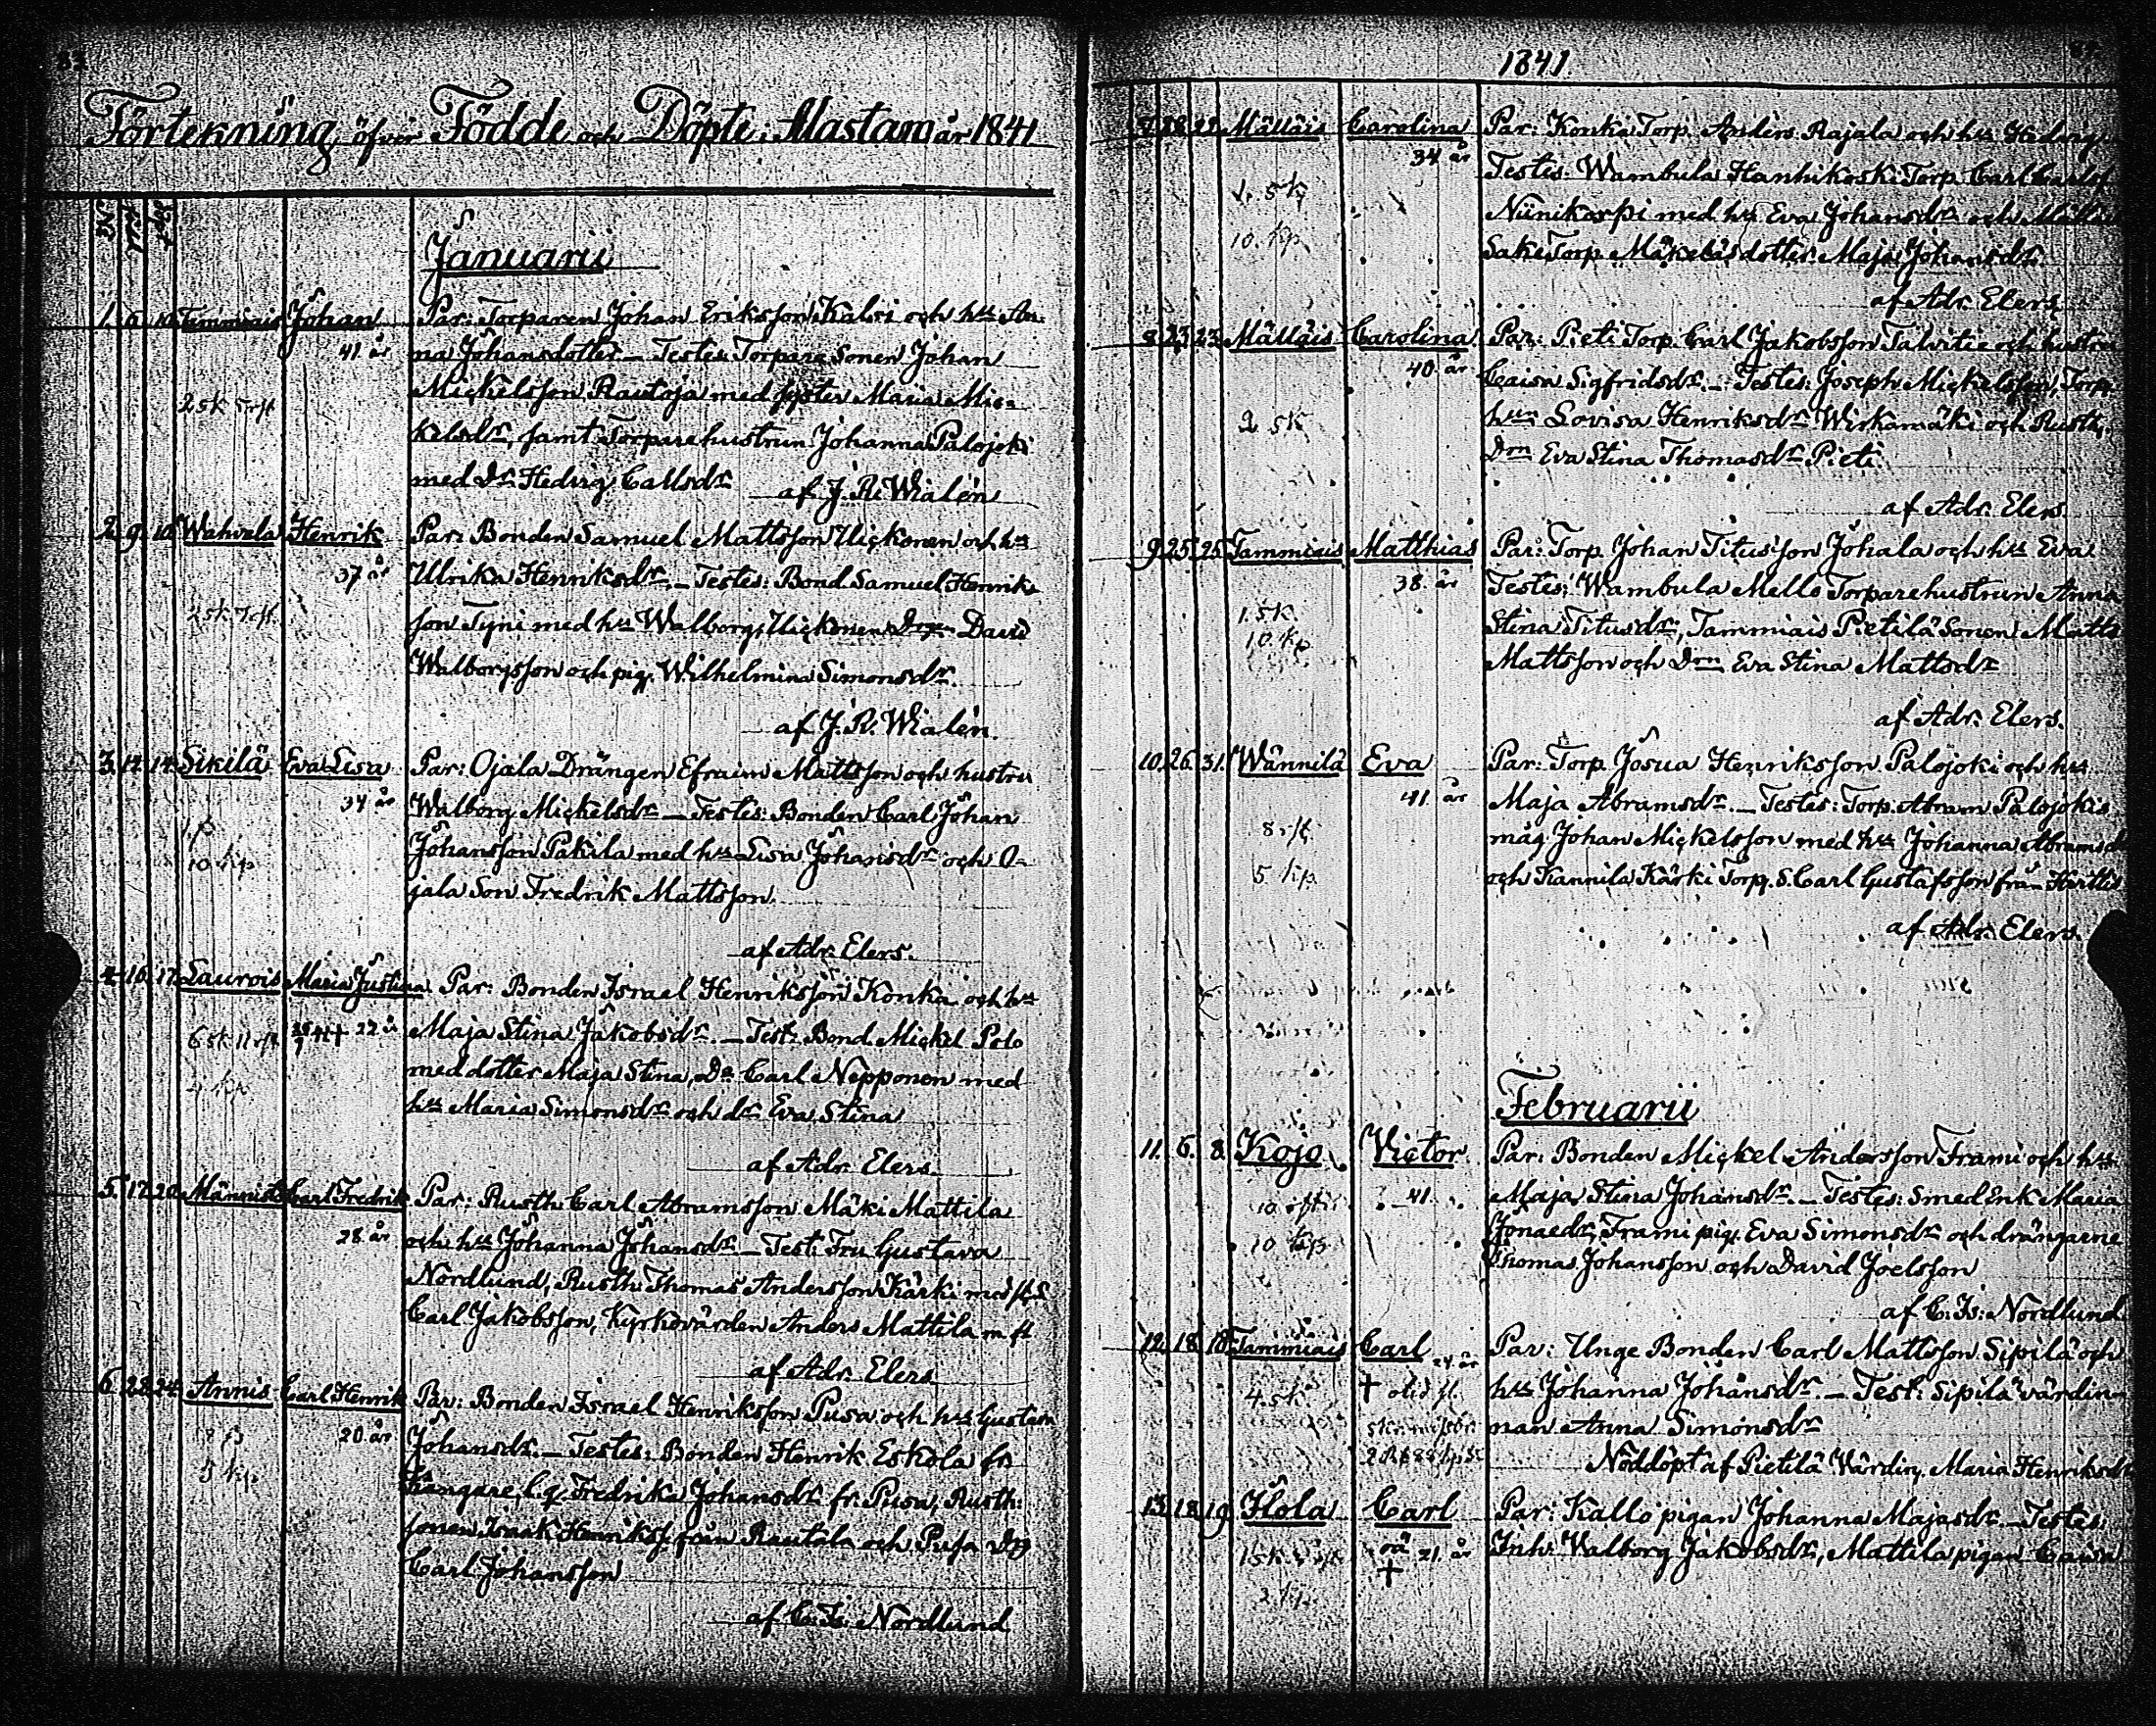 83
Förtekning öfver Födde och Döpte i Mastam år 1841
Januarii
1. 6. 10. Tammiais Johan Par: Torparen Johan Eriksson Kalsi och h:u An-
41 år na Johansdotter – Testes: Torpare Sonen Johan
Mickelsson Rautoja med syster Maria Mic-
25k 5rft
kelsdr, samt Torparehustrun Johanna Palojoki
med Dr Hedvig Carlsdr af J. R. Wialén
2. 9. 10. Wahvala Henrik Par: Bonden Samuel Mattsson Uckonen och h:u
37 år Ulrika Henriksdr. – Testes: Bond. Samuel Henriks
son Tyni med h:u Walborg, Uckonen Drg David
Walborgsson och pig. Wilhelmina Simonsdr.
af J. R. Wialén.
3. 12. 14. Sikilä Eva Lisa Par: Ojala Drängen Efraim Mattsson och hustru
34 år Walborg Mickelsdr – Testes: Bonden Carl Johan
Johansson Pakila med h:u Lisa Johansdr och O-
10 kp
jala Son Fredrik Mattsson.
af Adr. Elers.
4. 16. 17. Laurois Maria Justina Par: Bonden Israel Henriksson Konka och h:u
22 år Maja Stina Jakobsdr. – Test: Bond. Mickel Polo
med dotter Maja Stina, Do Carl Nepponen med
h:u Maria Simonsdr och dr Eva Stina
af Adr. Elers
5. 17. 20. Männistö Carl Fredrik Par: Rusth. Carl Abramsson Mäki Mattila
28 år och h:u Johanna Johansdr – Test: Fru Gustava
Nordlund, Rusth. Thomas Andersson Kärki med
Carl Jakobsson, Kyrkovärden Anders Mattila
af Adr. Elers
6. 24. Annis Carl Henrik Par: Bonden Israel Henriksson Pusa och h:u Gustava
20 år Johansdr. – Testes: Bonden Henrik Eskola fr
5 kp
Fredrika Johansdr fr. Pusa, Rusth:
sonen Isaak Henrikss. från Rautala och Pusa Drg
Carl Johansson
af C. Is. Nordlund
1841.
7. 22. Mälläis Carolina Par: Konka Torp. Anders Rajala och h:u Hedvig
34 år Testes: Wambula Hanhikoski Torp. Carl Carls
Niinikorpi med h:u Eva Johansdr och
10. kp
Sake Torp. Mäkelas dotter Maja Johansdr
af Adr. Elers
8. 23. 23. Mälläis Carolina Par: Pieti Torp. Carl Jakobsson Talvitie och hustru
40 år Caisa Sigfridsdr. – Testes: Joseph Mickelsson, Torp.
2 5k
h:un Lovisa Henriksdr Wirkamäki och Rusth.
Dm Eva Stina Thomasdr Pieti
af Adr. Elers
9. 25. 25. Tammiais Matthias Par: Torp. Johan Titusson Johala och h:u Eva
38. år Testes: Wambula Mello Torparehustrun Anna
1.5k.
10 kp
Stina Titusdr, Tammiais Pietilä Sonen Matts
Mattsson och Dm Eva Stina Mattsdr
af Adr. Elers.
10. 26. 31. Wännilä Eva Par: Torp. Josua Henriksson Palojoki och h:u
41. år Maja Abramsdr. – Testes: Torp. Abram Palojokis
måg Johan Mickelsson med h:u Johanna Abramsd
5 kp
och Kannila Kärki Torp. S. Carl Gustafsson från
af Adr. Elers.
Februarii
11. 6. 8. Kojo Victor Par: Bonden Mickel Andersson Frami och h:u
41. Maja Stina Johansdr. – Testes: Smed Enk. Maria
10 kp
Jonaedr, Frami pig. Eva Simonsdr och drängarne
Thomas Johansson och David Joelsson
af C. Is: Nordlund
12. 18. 18. Tammiais Carl Par: Unge Bonden Carl Mattsson Sipilä och
24 år
4.5k h:u Johanna Johansdr. – Test: Sipilä värdin-
nan Anna Simonsdr
Nöddöpt af Pietilä Värdin. Maria Henriksdr
13. 18. 19. Hola Carl Par: Kallo pigan Johanna Majasdr. – Testes:
oä 21. år Inh. Walborg Jakobsdr, Mattila pigan Caisa